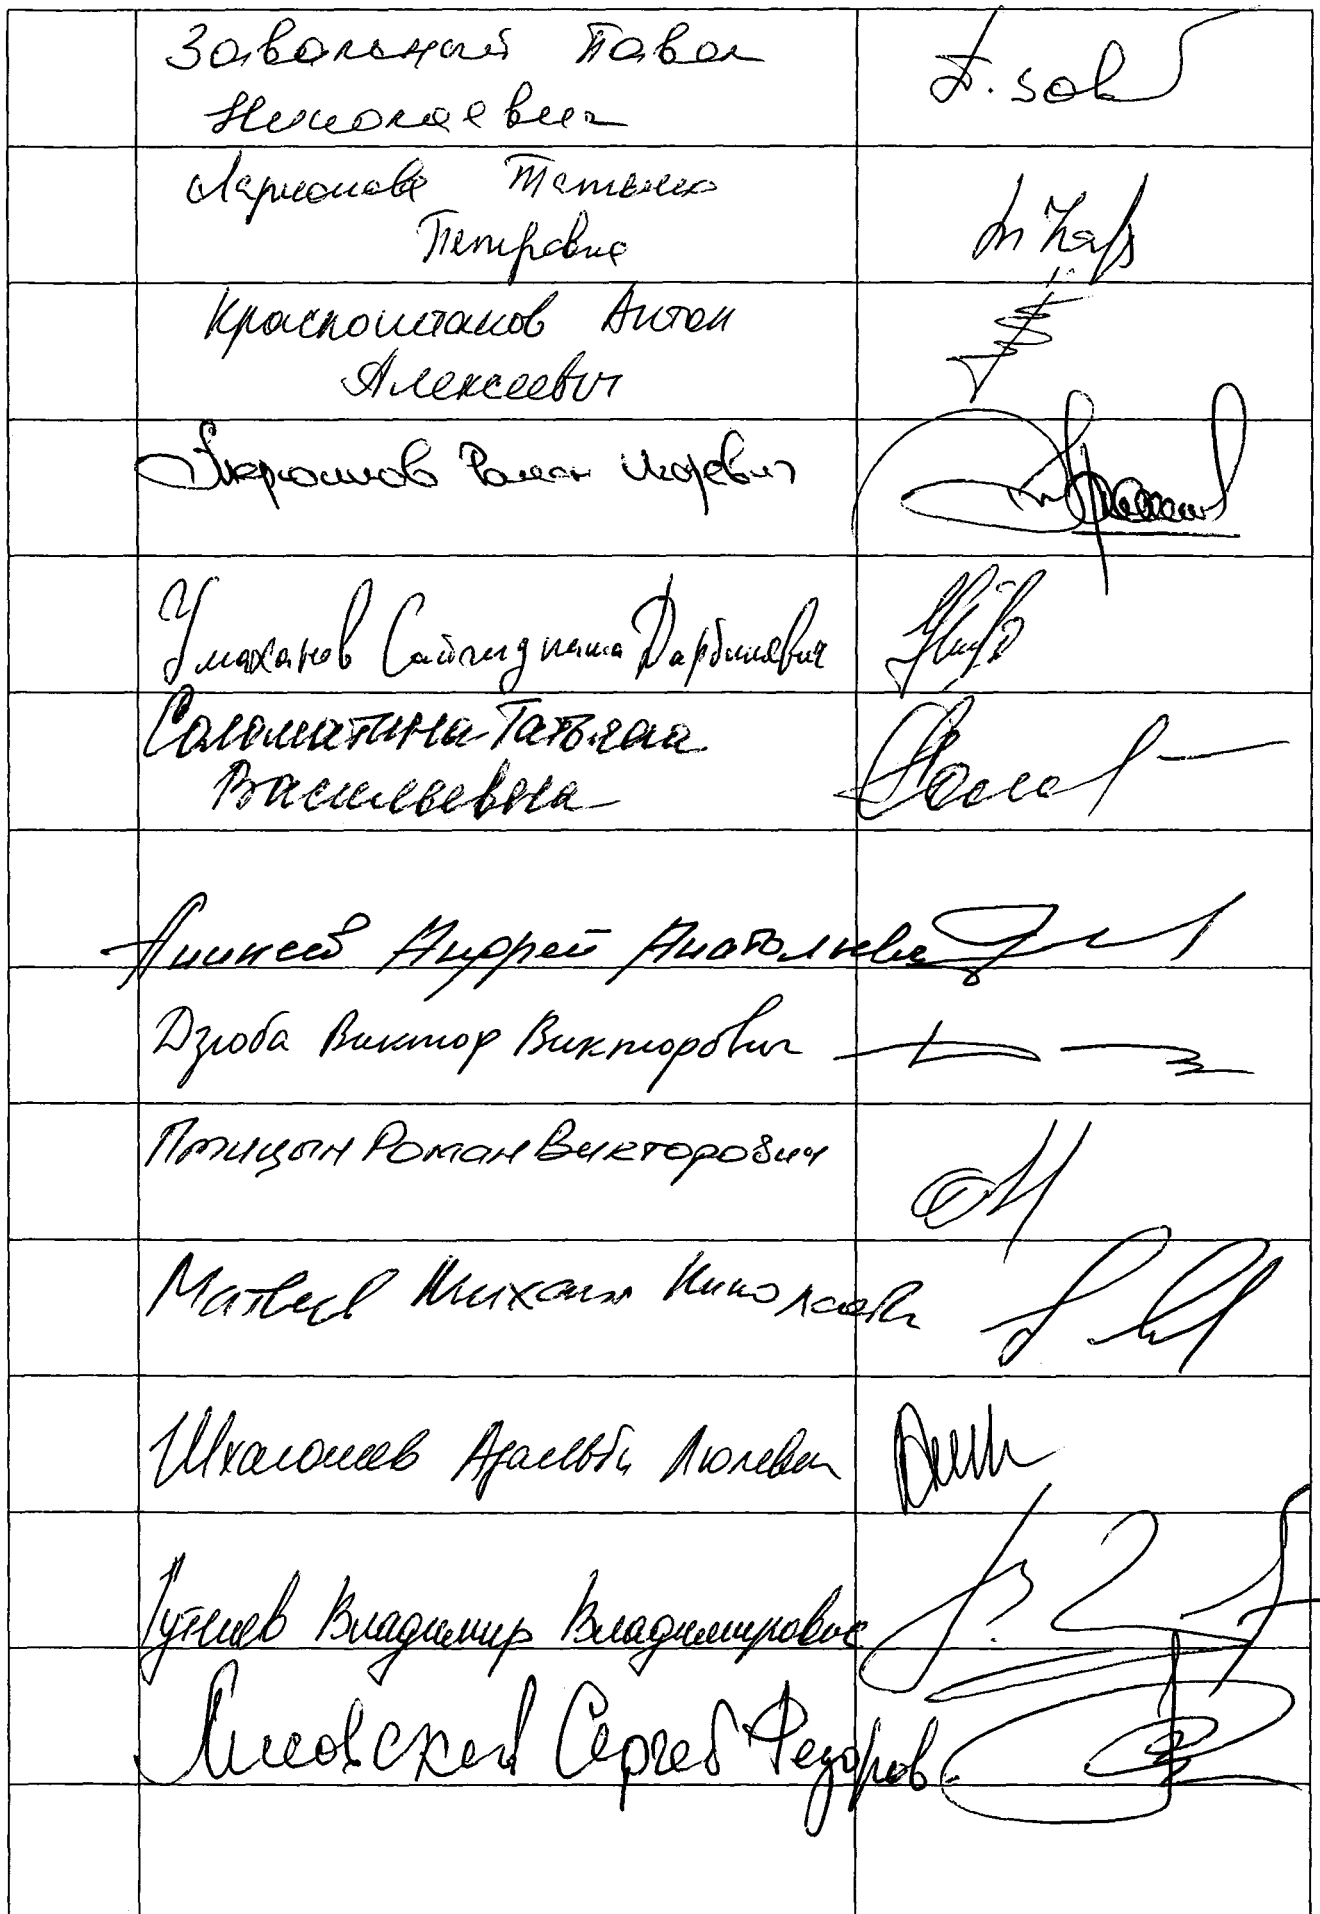 Завальный Павел
Николаевич
Ларионова Татьяна
Петровна
Красноштанов Антон
Алексеевич
Роман Игоревич
Умаханов Сайгидпаша Дарбишевич
Саломатина Татьяна
Васильевна
Аникеев Андрей Анатольевич
Дзюба Виктор Викторович
Птицын Роман Викторович
Матвеев Михаил Николаевич
Шхагошев Адальби Люлевич
Гутенев Владимир Владимирович
Лисовский Сергей Федоров.